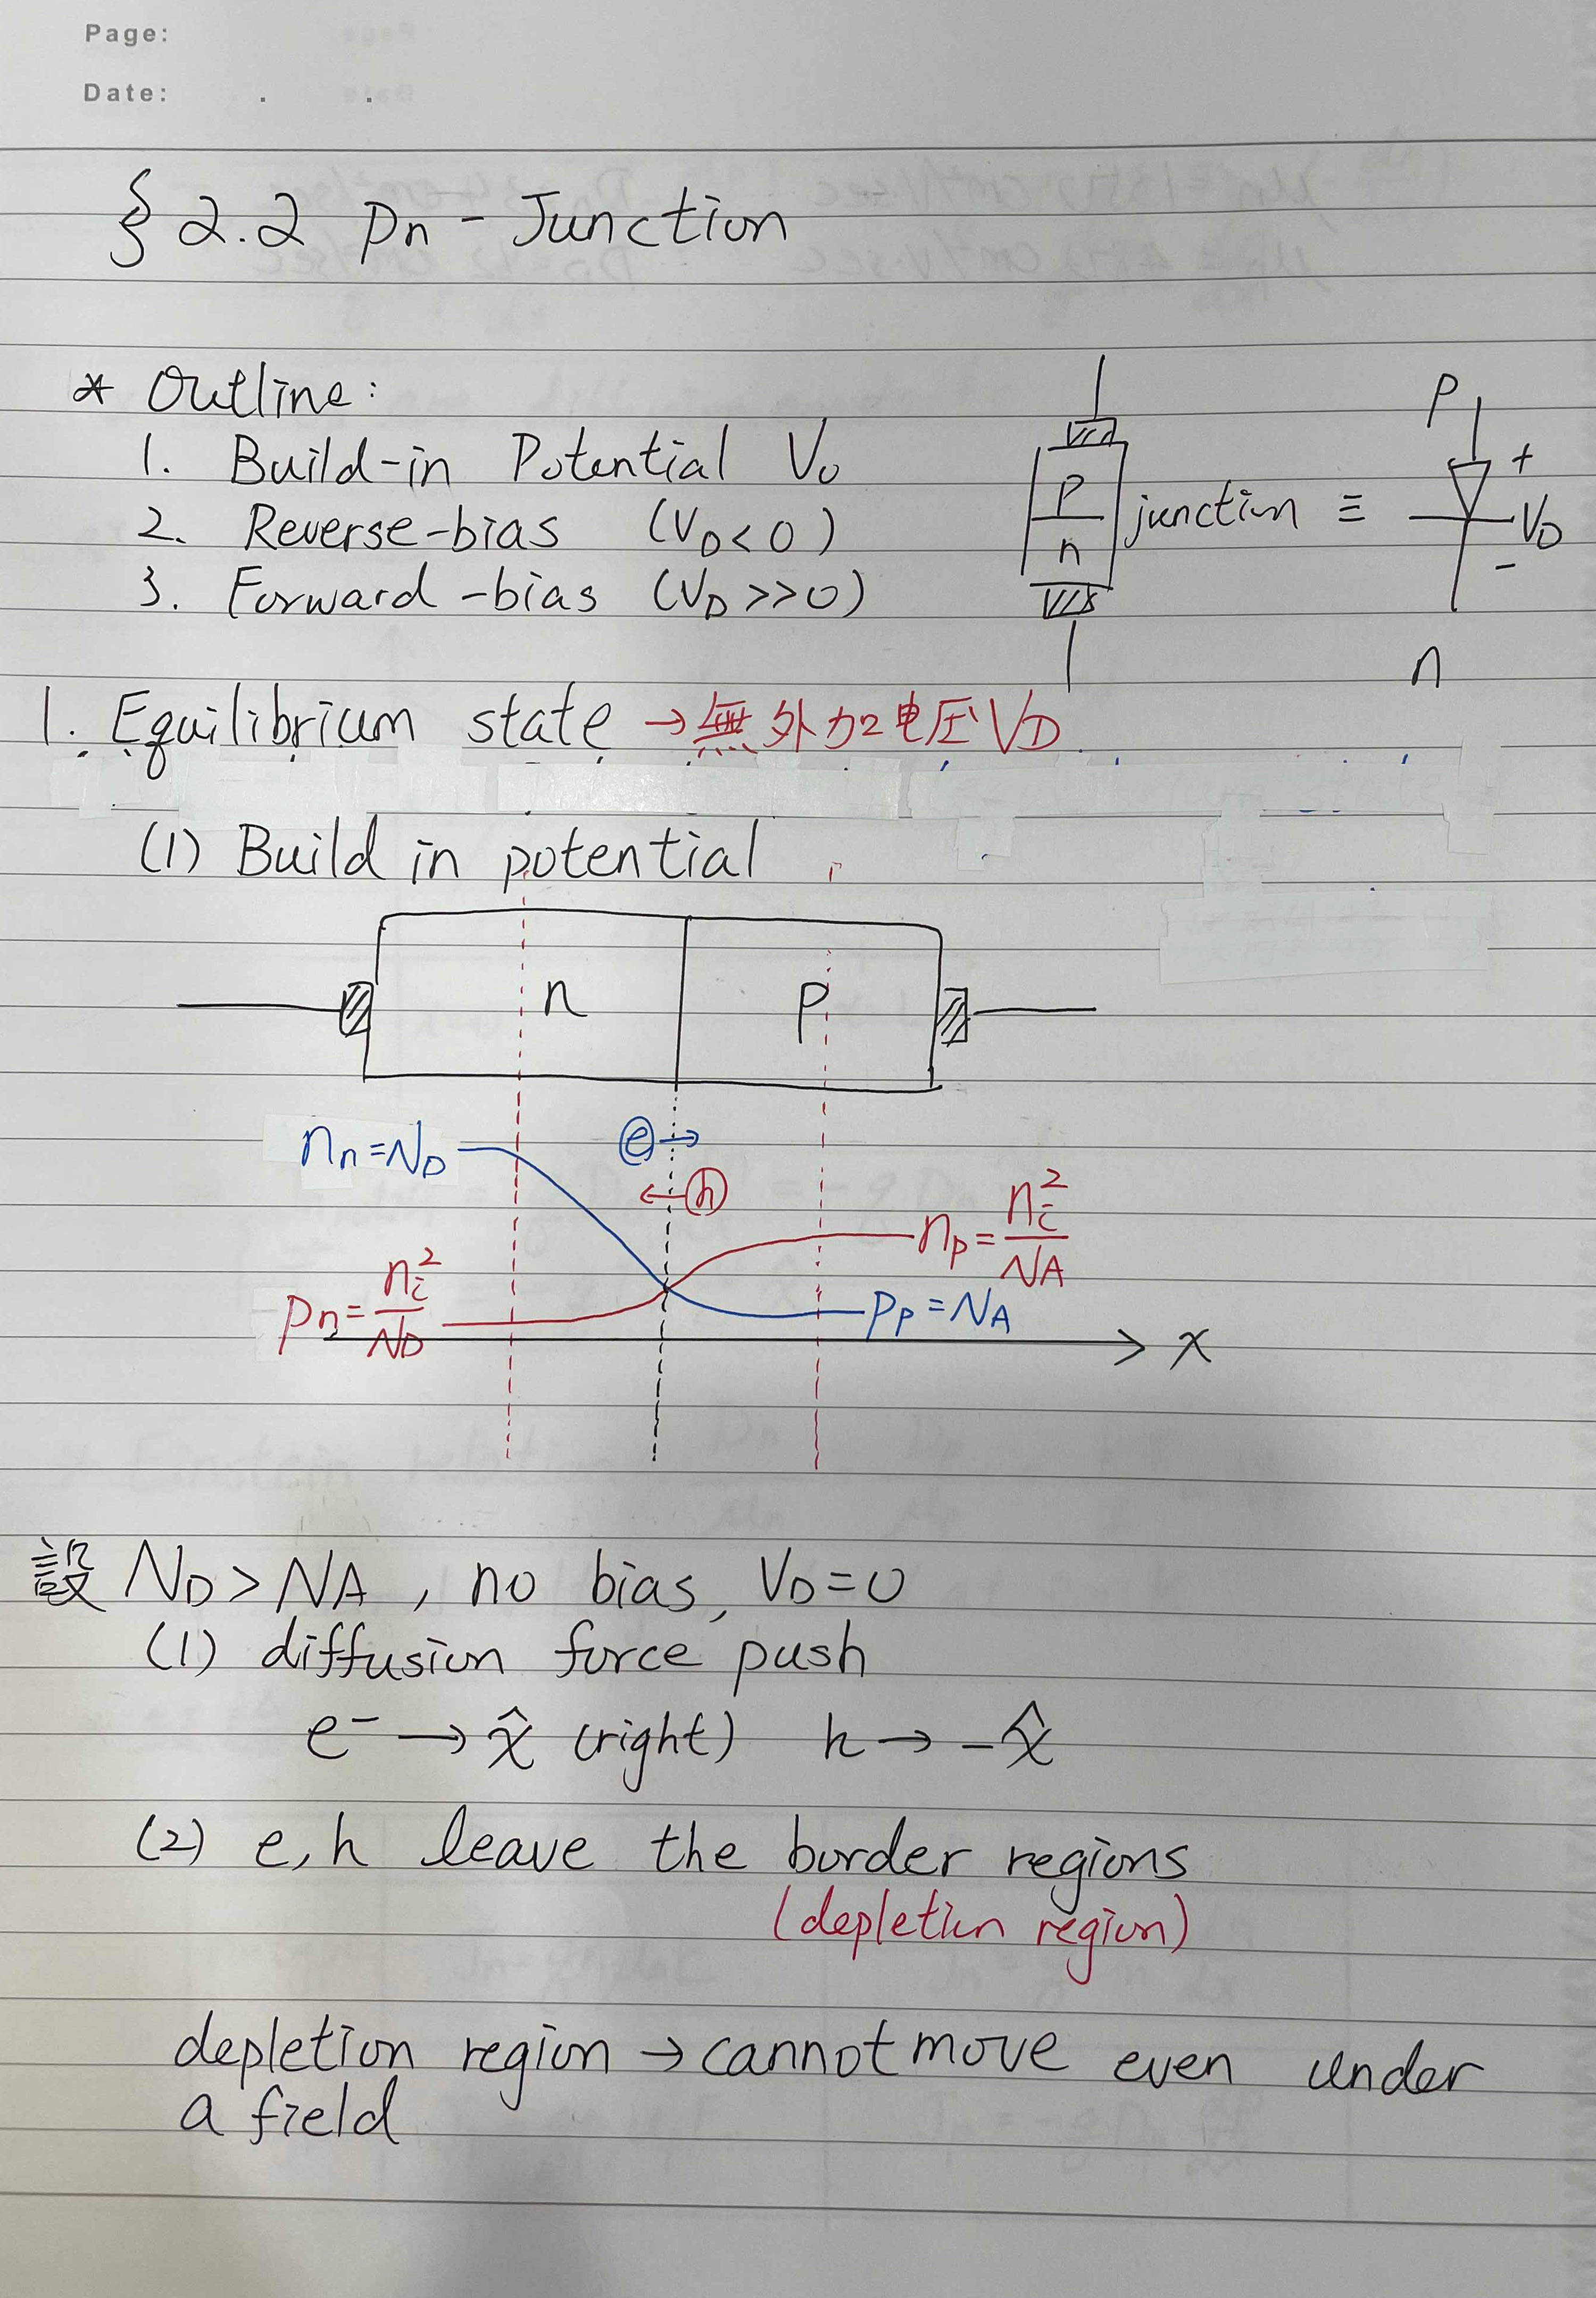 Page:
Date: . .
§ 2.2 pn-Junction
* Outline:
1. Build-in Potential V₀
2. Reverse-bias (V_D<0)
3. Forward-bias (V_D>>0)
p
n
junction ≡
P
+
V_D
-
n
1. Equilibrium state → 無外加電圧 V_D
(1) Build in potential
n
p
n_n=N_D
e →
← h
n_p = n_i²/N_A
p_n = n_i²/N_D
p_p = N_A
x
設 N_D > N_A, no bias, V_D=0
(1) diffusion force push
e⁻ → x̂ (right) h → -x̂
(2) e,h leave the border regions
(depletion region)
depletion region → cannot move even under
a field